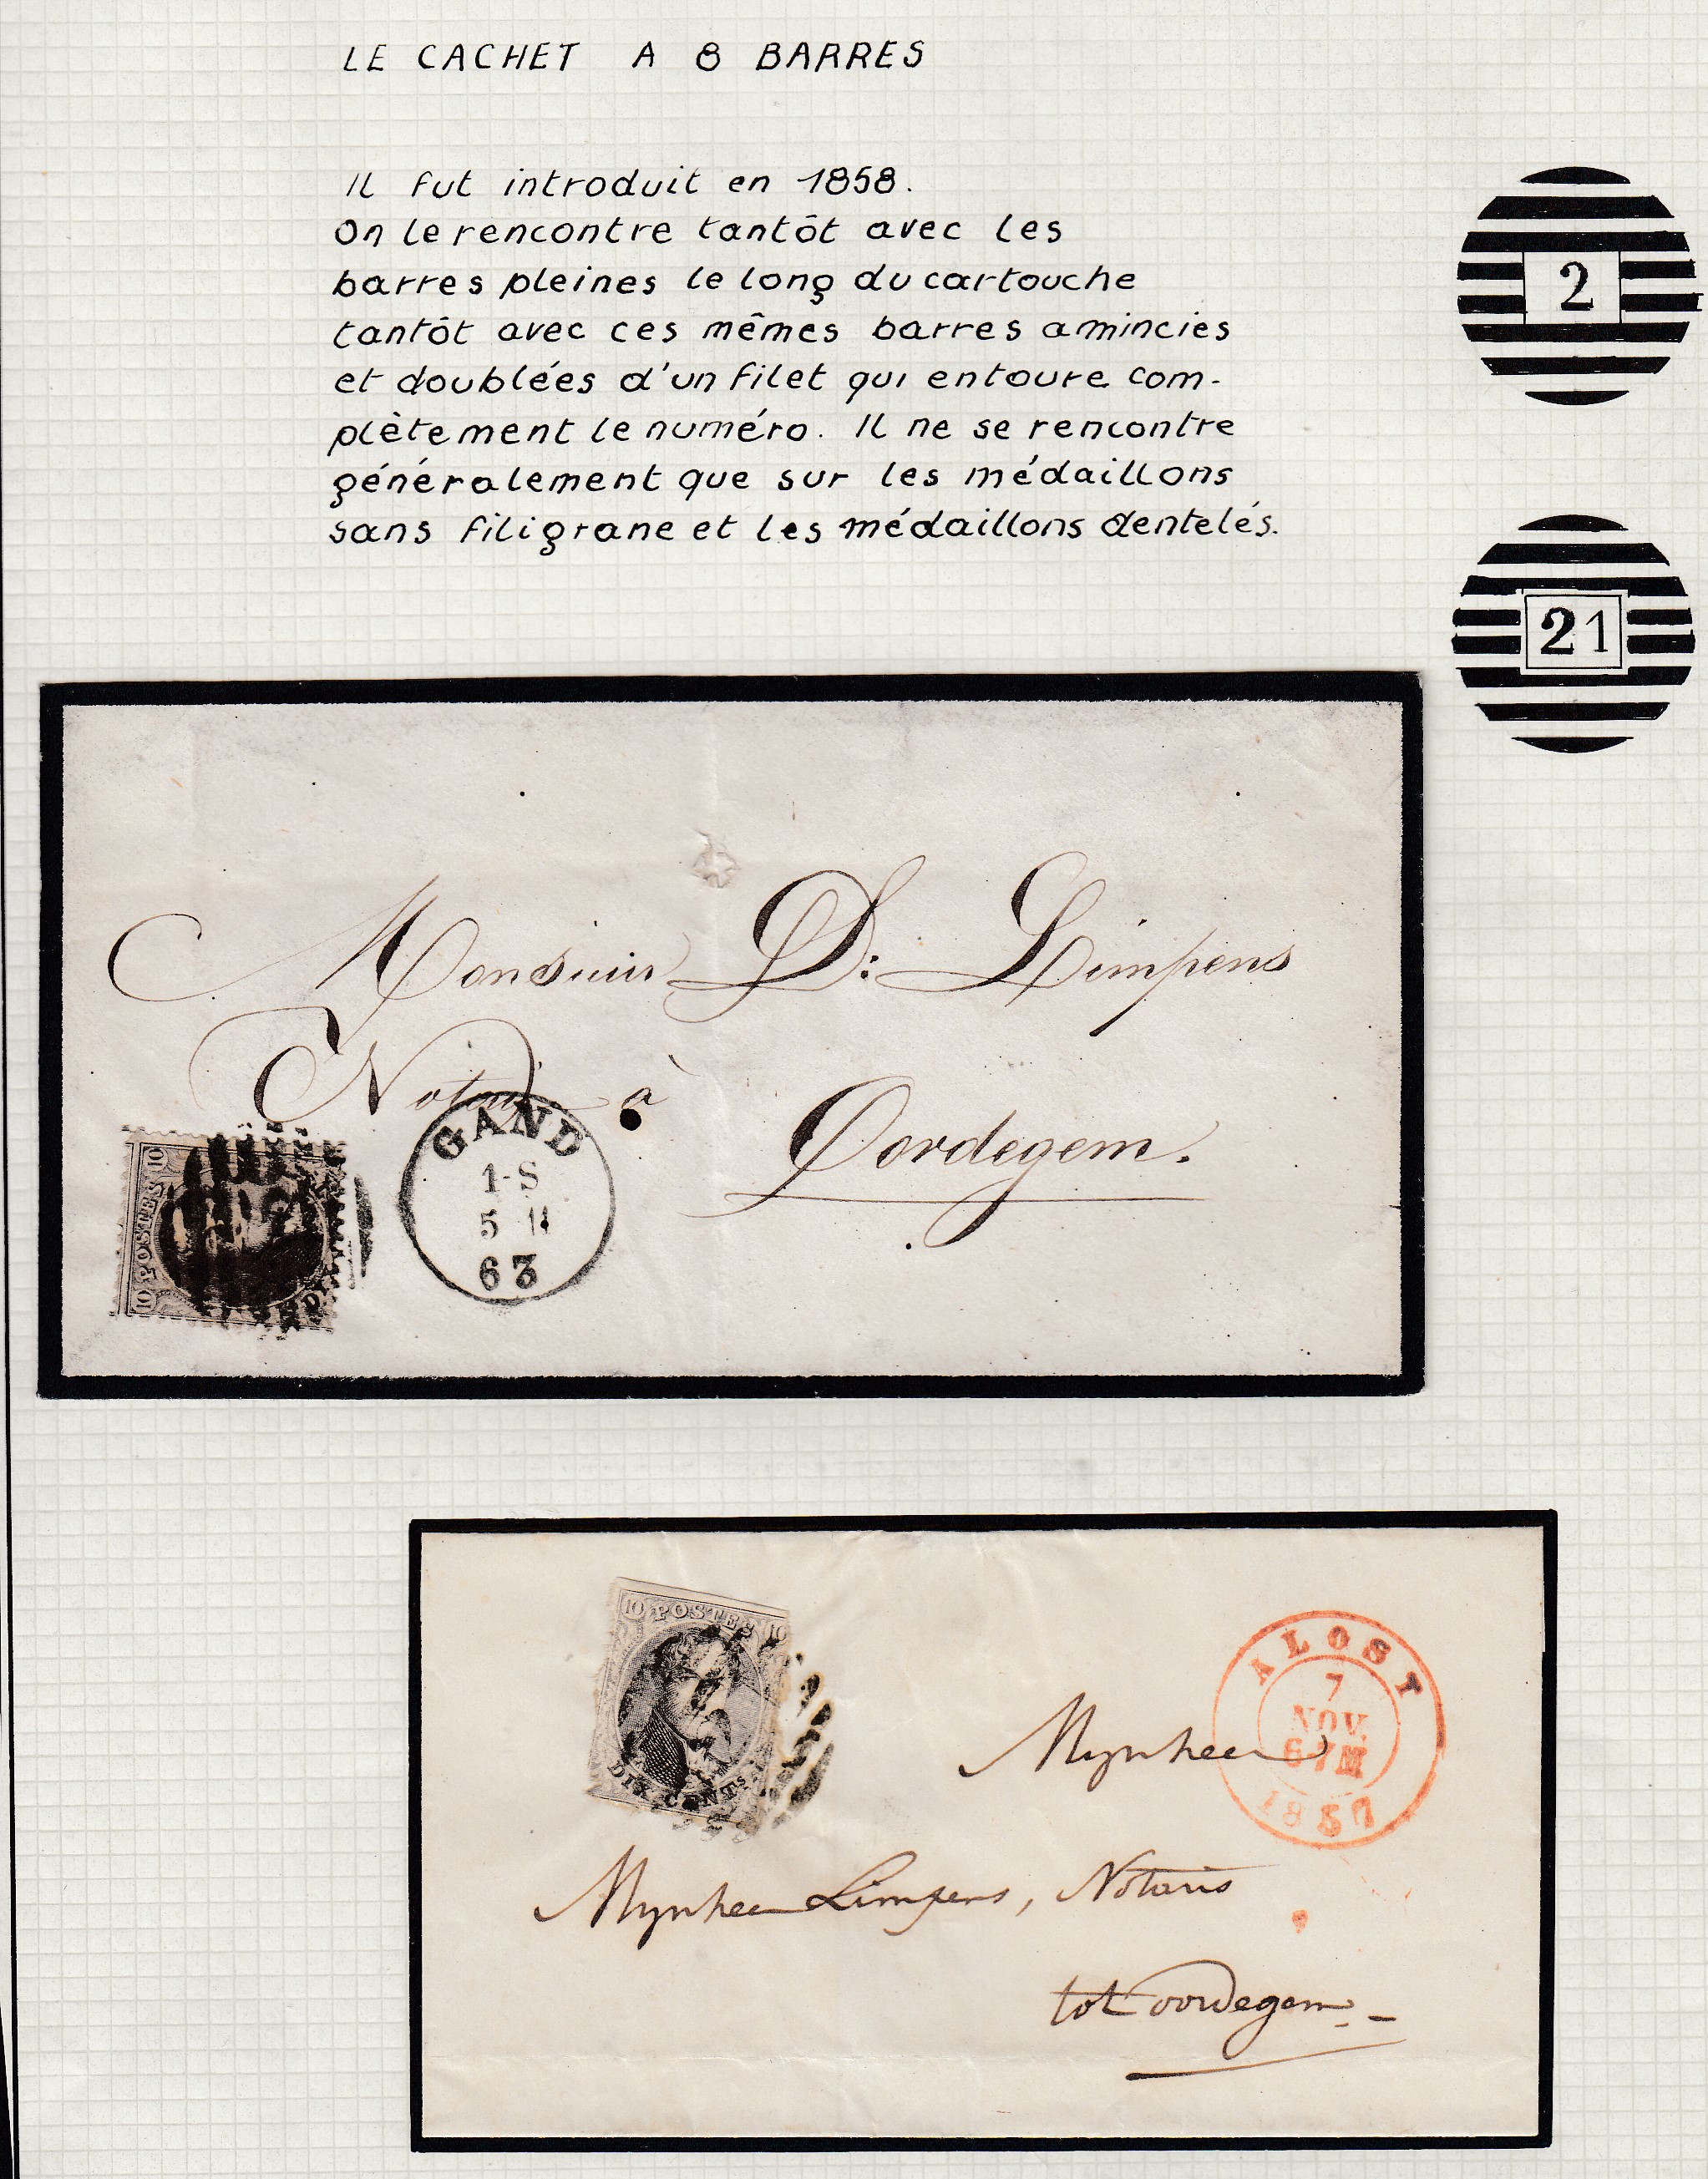 LE CACHET A 8 BARRES
Il fut introduit en 1858.
On le rencontre tantôt avec les
barres pleines le long du cartouche
tantôt avec ces mêmes barres amincies
et doublées d'un filet qui entoure com-
plètement le numéro. Il ne se rencontre
généralement que sur les médaillons
sans filigrane et les médaillons dentelés.
2
21
Monsieur D: Limpens
Notaire à
Oordegem.
10
POSTES
10
GAND
1-S
5 11
63
10 POSTES 10
DIX CENTS
ALOST
7
NOV.
6-7M
18
Mynheer
Mynheer Limpens, Notaris
tot oordegem. -